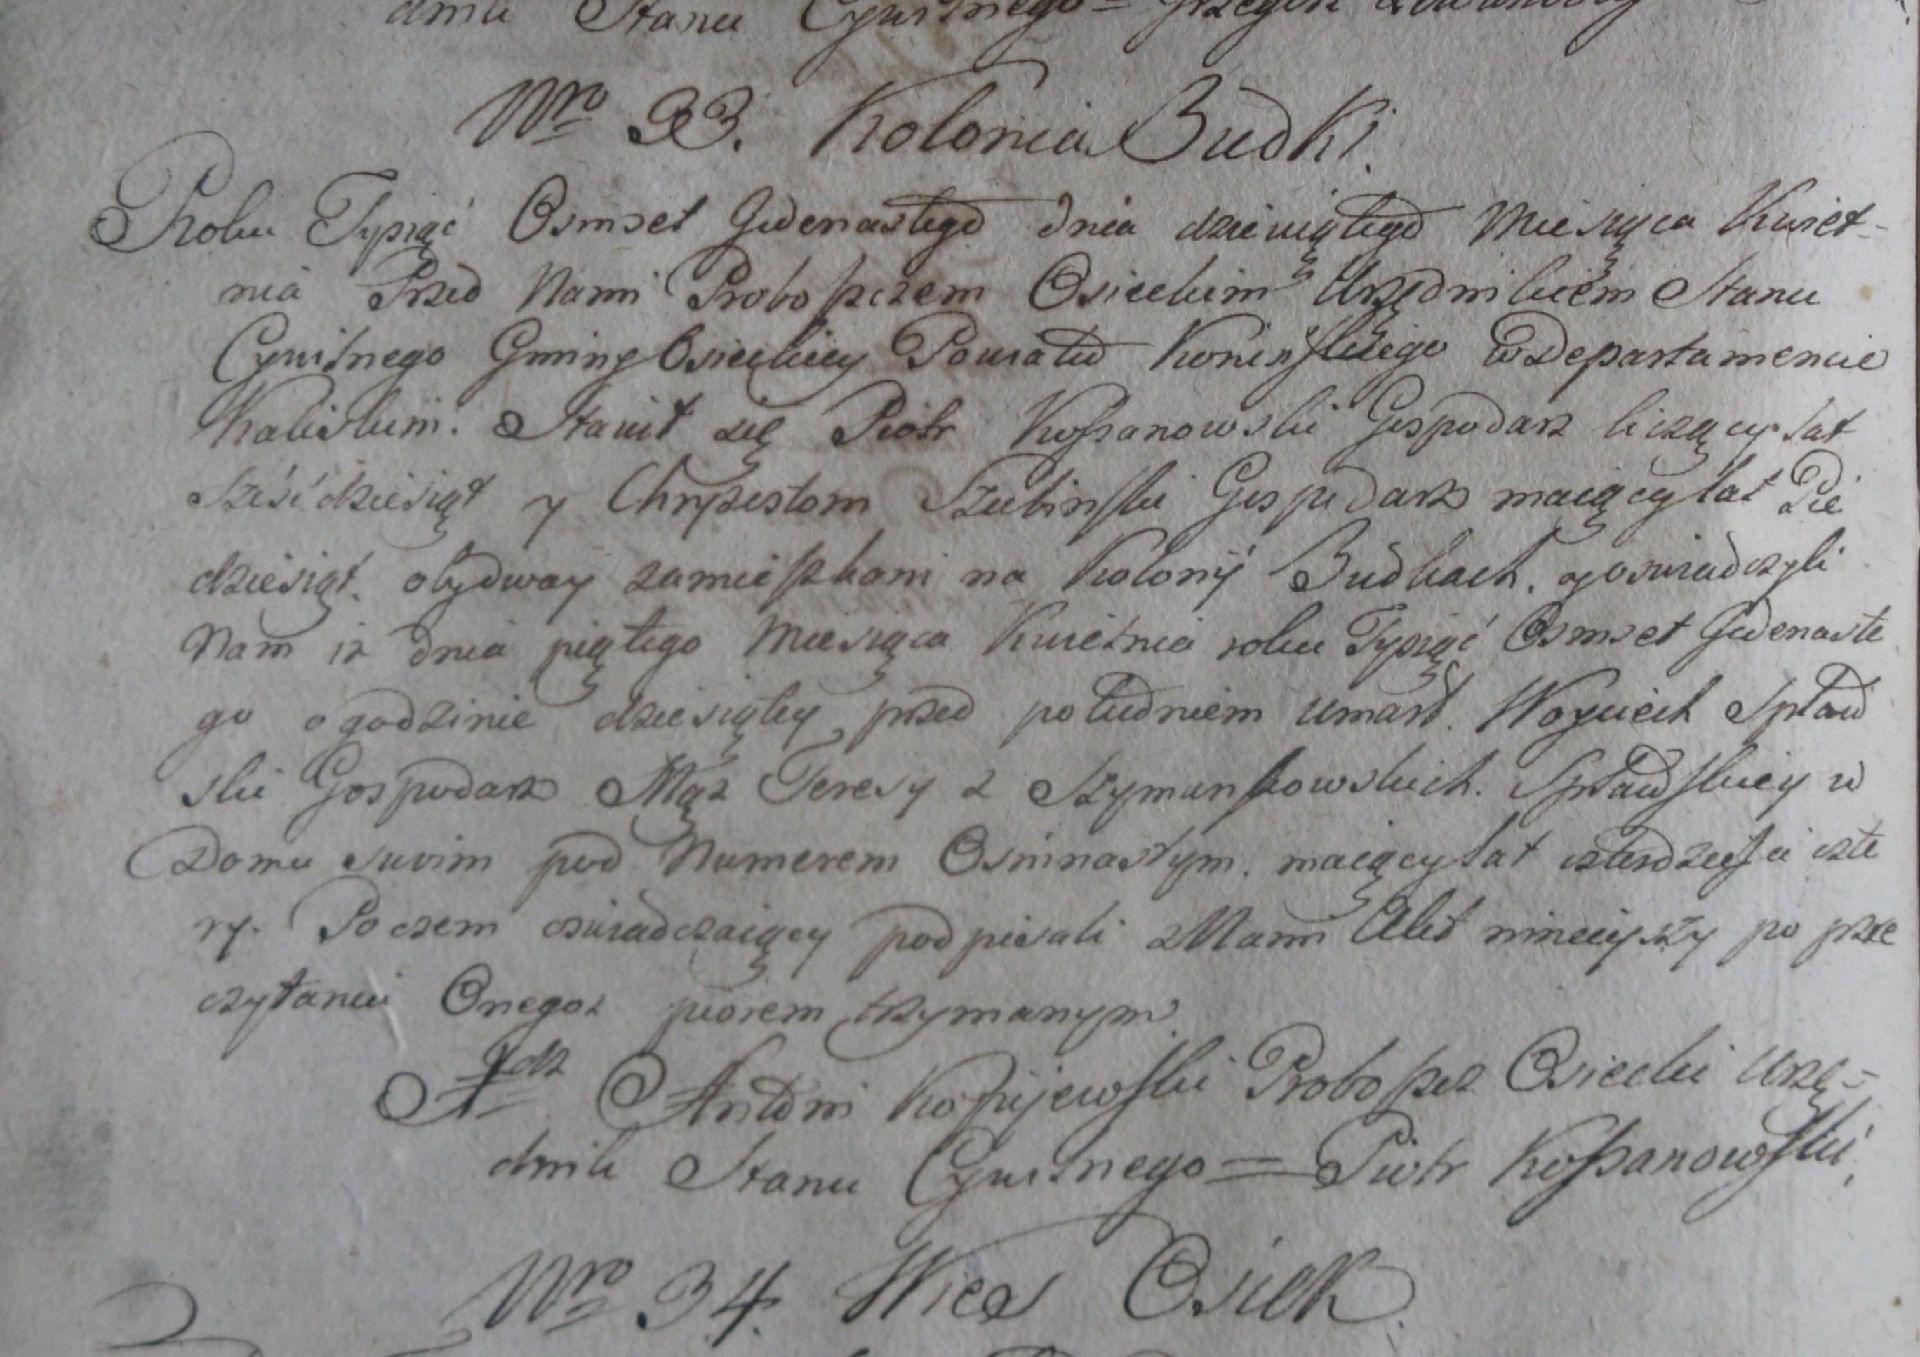 dnik Stanu Cywilnego = Grzegorz
Nro 33. Kolonia Budki.
Roku Tysiąć Osmset Jedenastego dnia dziewiątego Miesiąca Kwiet-
nia Przed Nami Proboszczem Osieckim Urzędnikiem Stanu
Cywilnego Gminy Osieckiey Powiatu Konińskiego w Departamencie
Kaliskim. Stawił się Piotr Kossanowski Gospodarz liczący lat
Sześćdziesiąt y Chryzostom Szubiński Gospodarz maiący lat Pię
dziesiąt. obydway zamieszkani na Kolonij Budkach. y oswiadczyli
Nam iż dnia piątego Miesiąca Kwietnia roku Tysiąć Osmset Jedenaste
go o godzinie dziesiątey przed południem umarł. Woyciech Spław
ski Gospodarz Mąż Teresy z Szymankowskich. Spławskiey w
Domu swoim pod Numerem Osmnastym. maiący lat czterdzieści czte
ry. Poczem oswiadczaiący podpisali z Nami Akt ninieyszy po prze
czytaniu Onegoż piorem trzymanym
Xdz Antoni Kopijewski Proboszcz Osiecki Urzę-
dnik Stanu Cywilnego = Piotr Kossanowski.
Nro 34. Wies Osiek.